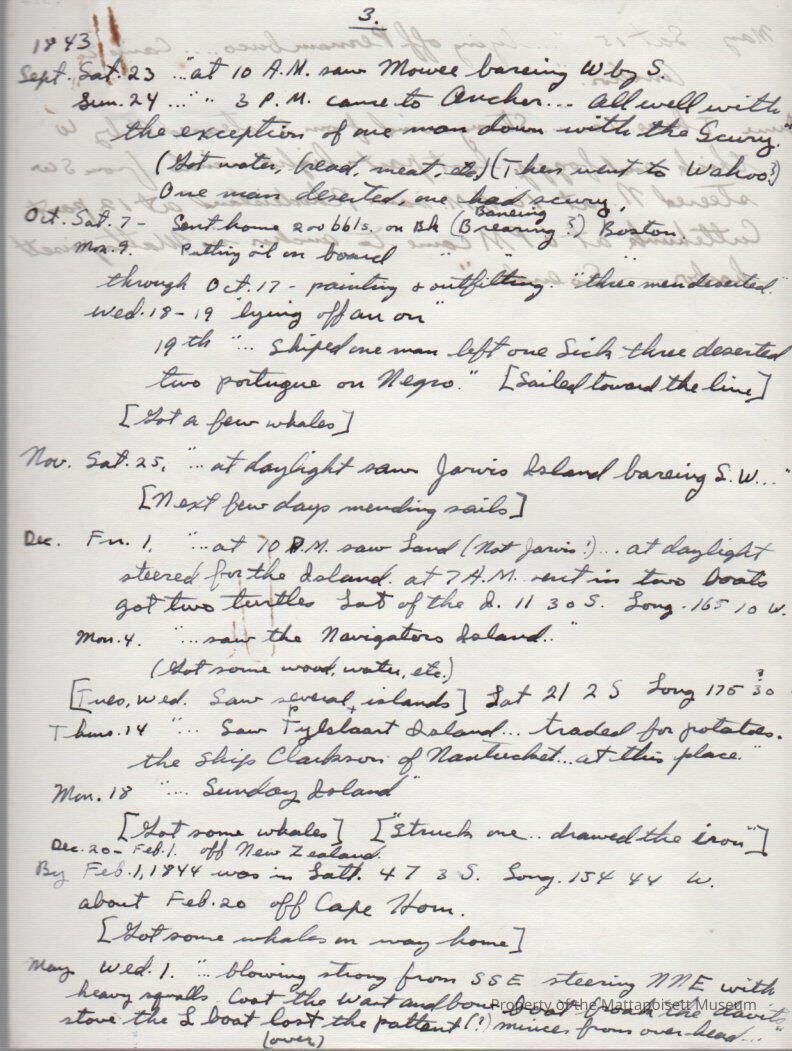 3.
1843
Sept. Sat. 23 "at 10 A.M. saw Mowee bareing W by S.
Sun. 24 ... " " 3 P.M. came to Ancher... all well with
the exception of one man down with the Scury."
(Got water, bread, meat, etc.) (Then went to Wahoo?)
One man deserted, one had scury.
Oct. Sat. 7 - Sent home 200 bbls. on Bk (Brearing?) Boston.
Baneing
Mon. 9. Putting oil on board " " "
through Oct. 17 - painting & outfitting. "three men deserted."
Wed. 18-19 "lying off an on"
19th "... Shiped one man left one Sick three deserted
two portugue on Negro." [Sailed toward the line]
[Got a few whales]
Nov. Sat. 25, "... at daylight saw Jarvis Island bareing S.W..."
[Next few days mending sails]
Dec. Fri. 1. "... at 10 P.M. saw Land (Not Jarvis!)... at daylight
steered for the Island. at 7 A.M. sent in two boats
got two turtles Lat of the I. 11 30 S. Long. 165 10 W.
Mon. 4. "... saw the Navigators Island.."
(Got some wood, water, etc.)
[Tues, Wed. Saw several islands] Lat 21 2 S Long 175 30
?
Thurs. 14 "... Saw Tylstaart Island... traded for potatoes.
P
the Ship Clarkson of Nantucket... at this place."
Mon. 18 "... Sunday Island"
[Got some whales] ["Struck one.. drawed the iron"]
Dec. 20 - Feb. 1. off New Zealand.
By Feb. 1, 1844 was in Latt. 47 3 S. Long. 154 44 W.
about Feb. 20 off Cape Horn.
[Got some whales on way home]
May Wed. 1. "... blowing strong from SSE steering NNE with
heavy squalls. Coat the Waist and bow boat broak the davits
stove the L boat lost the pattant (?) minces from over head..."
(over)
Property of the Mattapoisett Museum